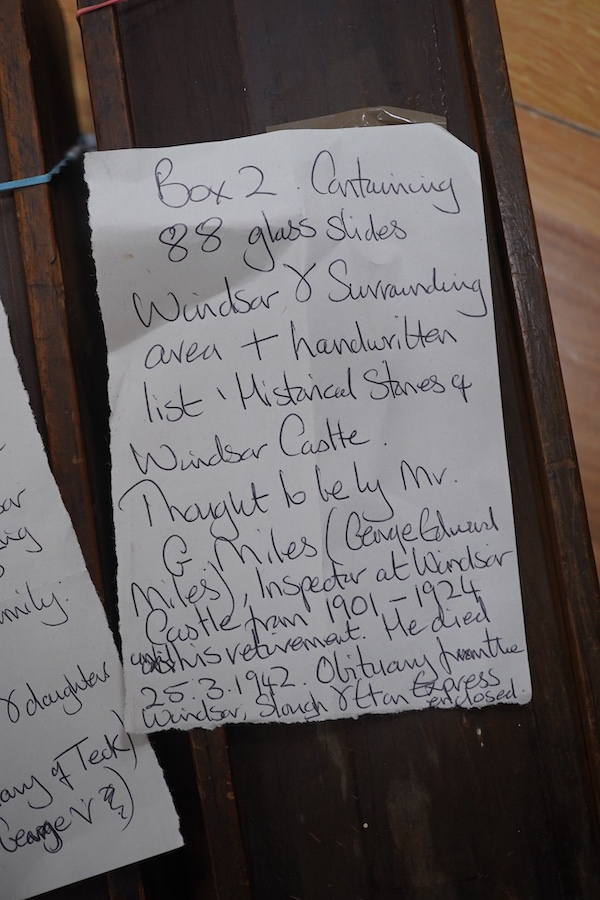 Box 2. Containing
88 glass slides
Windsor & Surrounding
area + handwritten
list 'Historical Stones of
Windsor Castle.
Thought to be by Mr.
G. Miles (George Edward
Miles), Inspector at Windsor
Castle from 1901-1924
until his retirement. He died
25.3.1942. Obituary from the
Windsor, Slough & Eton Express
enclosed
family.
& daughter
of Teck)
George V